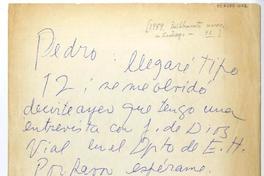 Pedro: llegaré tipo
12; se me olvidó
decirte ayer que tengo una
entrevista con J. de Dios
Vial en el Dpto de E. H.
Por favor espérame.